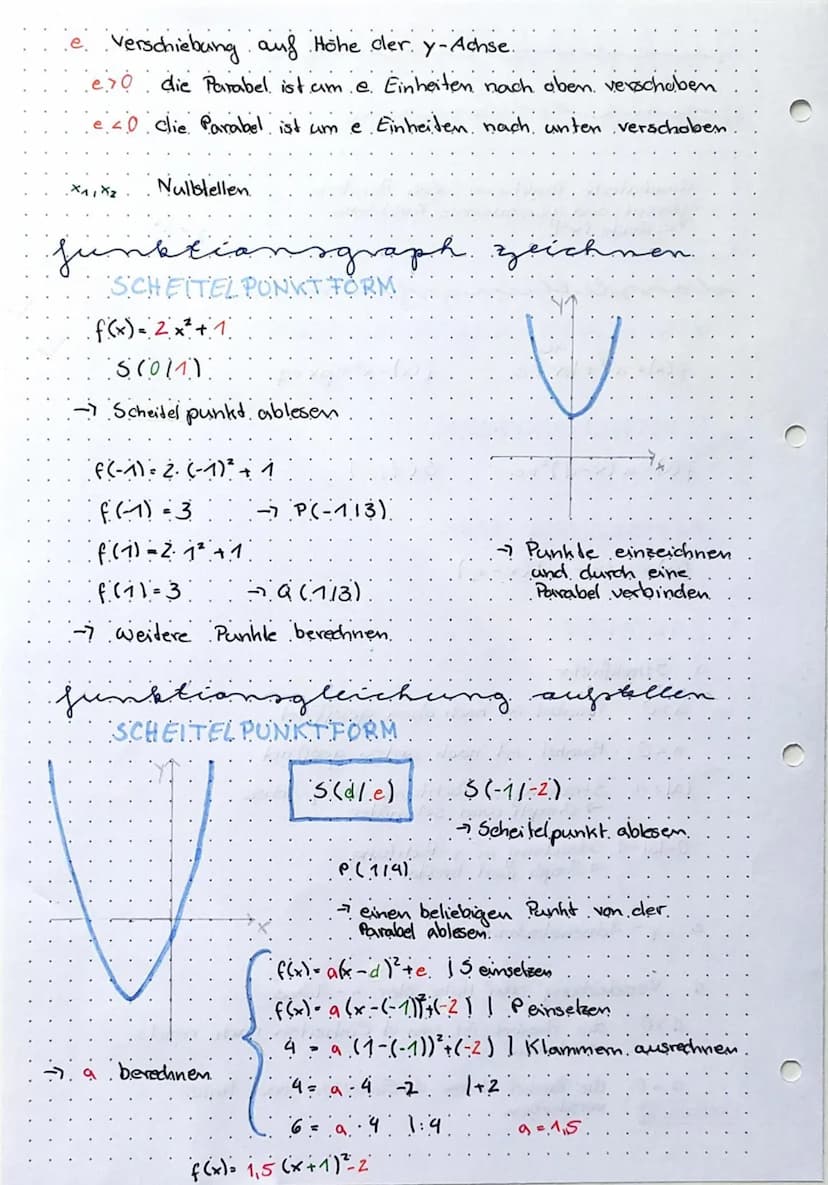 e Verschiebung auf Höhe der y-Achse.
e>0 die Parabel ist um e Einheiten nach oben verschoben
e<0 die Parabel ist um e Einheiten nach unten verschoben
x₁, x₂ Nullstellen
funktionsgraph zeichnen
SCHEITELPUNKTFORM
f(x) = 2x² + 1
S(0/1)
→ Scheitelpunkt ablesen
f(-1) = 2·(-1)² + 1
f(-1) = 3 → P(-1/3)
f(1) = 2·1² + 1
f(1) = 3 → Q(1/3)
→ weitere Punkte berechnen.
y
x
→ Punkte einzeichnen
und durch eine
Parabel verbinden
funktionsgleichung aufstellen
SCHEITELPUNKTFORM
y
x
S(d/e) S(-1/-2)
→ Scheitelpunkt ablesen.
P(1/4)
→ einen beliebigen Punkt von der
Parabel ablesen.
f(x) = a(x-d)² + e | S einsetzen
f(x) = a(x-(-1))²+(-2) | P einsetzen
4 = a·(1-(-1))²+(-2) | Klammern ausrechnen
→ a berechnen
4 = a·4 -2 |+2
6 = a·4 |:4 a = 1,5
f(x) = 1,5(x+1)²-2